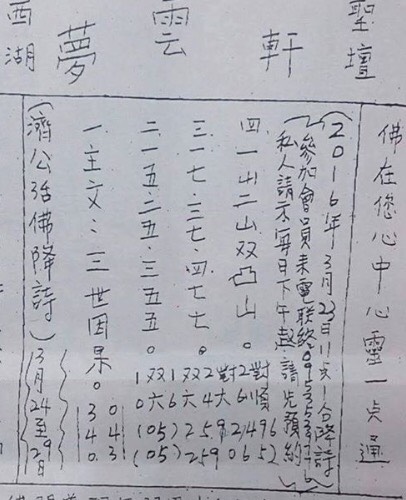 西湖 夢雲軒 聖壇
佛在您心中心靈一点通
(2016年3月23日11点1合降詩)
參加會員来電聯終
私人請示每日下午起.請先預約
四一出二山双凸山。
三一七.三七.四七七。
二一五.二五.三五五。
一主文:三世因果。
(濟公活佛降詩)
1双1双2對2對
0六6六4六6順
(05)2592496
(05)2590652
(3月24至29日)